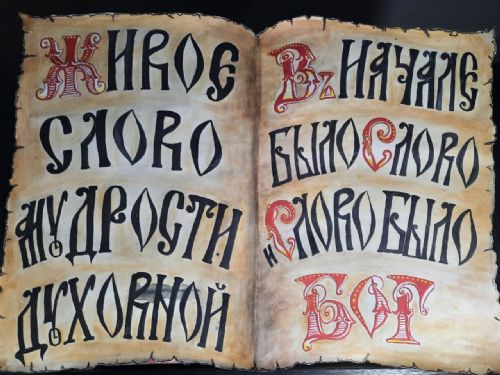 Живое
слово
мудрости
духовной
Въ начале
было Слово
и Слово было
Бог